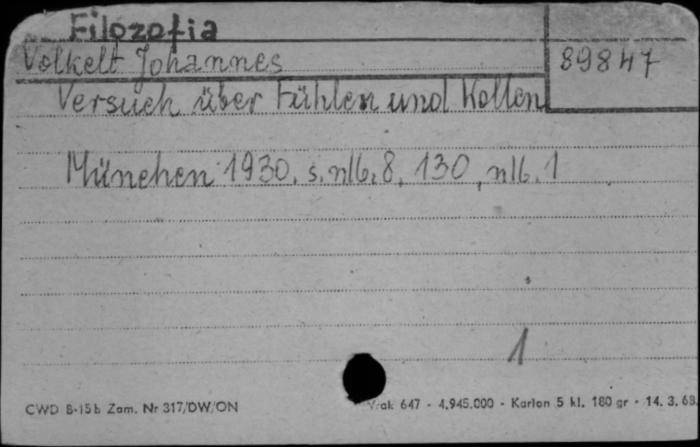 Filozofia
Volkelt Johannes
89847
Versuch über Fühlen und Wollen
München 1930. s. nlb. 8, 130, nlb. 1
1
CWD B-15b Zam. Nr 317/DW/ON
647 - 4.945.000 - Karton 5 kl. 180 gr - 14. 3. 68.